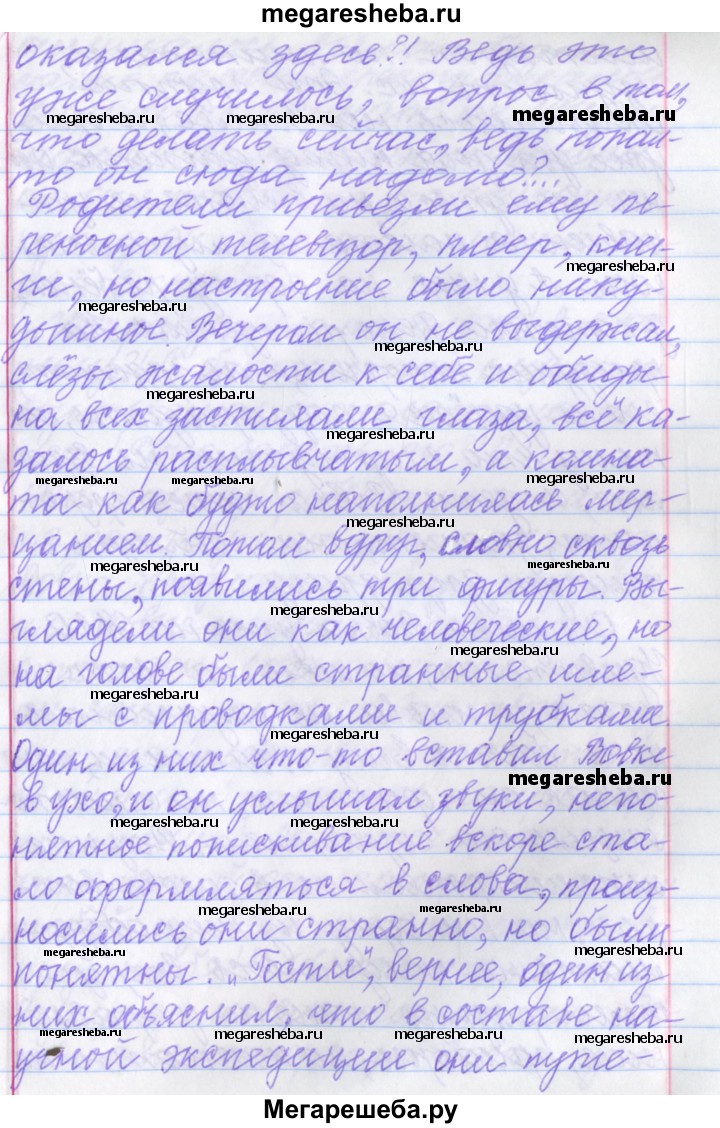 megaresheba.ru
оказался здесь?! Ведь это
уже случилось, вопрос в том,
megaresheba.ru megaresheba.ru megaresheba.ru
что делать сейчас, ведь попал-
то он сюда надолго?...
Родители привезли ему пе-
реносной телевизор, плеер, кни-
megaresheba.ru
ги, но настроение было нику-
megaresheba.ru
дышное. Вечером он не выдержал,
megaresheba.ru
слёзы жалости к себе и обиды
megaresheba.ru
на всех застилали глаза, всё ка-
megaresheba.ru
залось расплывчатым, а комна-
megaresheba.ru megaresheba.ru megaresheba.ru
та как будто наполнилась мер-
megaresheba.ru
цанием. Потом вдруг, словно сквозь
megaresheba.ru megaresheba.ru
стены, появились три фигуры. Вы-
megaresheba.ru
глядели они как человеческие, но
megaresheba.ru
на голове были странные шле-
megaresheba.ru
мы с проводками и трубками.
megaresheba.ru
Один из них что-то вставил Вовке
megaresheba.ru
в ухо, и он услышал звуки, непо-
megaresheba.ru megaresheba.ru
нятное попискивание вскоре ста-
ло оформляться в слова, произ-
megaresheba.ru megaresheba.ru
носились они странно, но были
megaresheba.ru megaresheba.ru
понятны. „Гости", вернее, один из
них объяснил, что в составе на-
megaresheba.ru megaresheba.ru megaresheba.ru megaresheba.ru
учной экспедиции они путе-
Мегарешеба.ру